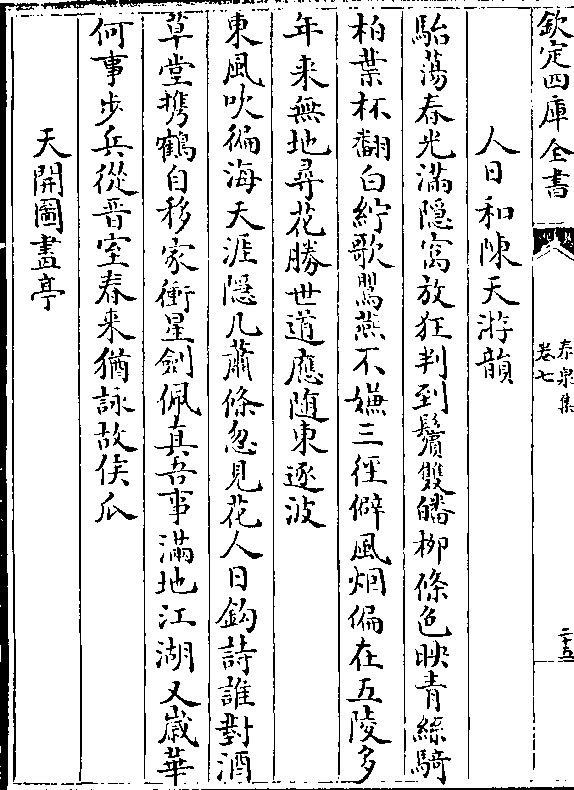 欽定四庫全書
泰泉集
卷七
二十五
人日和陳天游韻
駘蕩春光滿隱窩放狂判到鬢雙皤柳條色映青絲騎
柏葉杯翻白紵歌鶯燕不嫌三徑僻風烟偏在五陵多
年来無地尋花勝世道應随東逐波
東風吹徧海天涯隱几蕭條忽見花人日鈎詩誰對酒
草堂携鶴自移家衝星劍佩真吾事滿地江湖又嵗華
何事步兵從晉室春来猶詠故侯瓜
天開圖畫亭